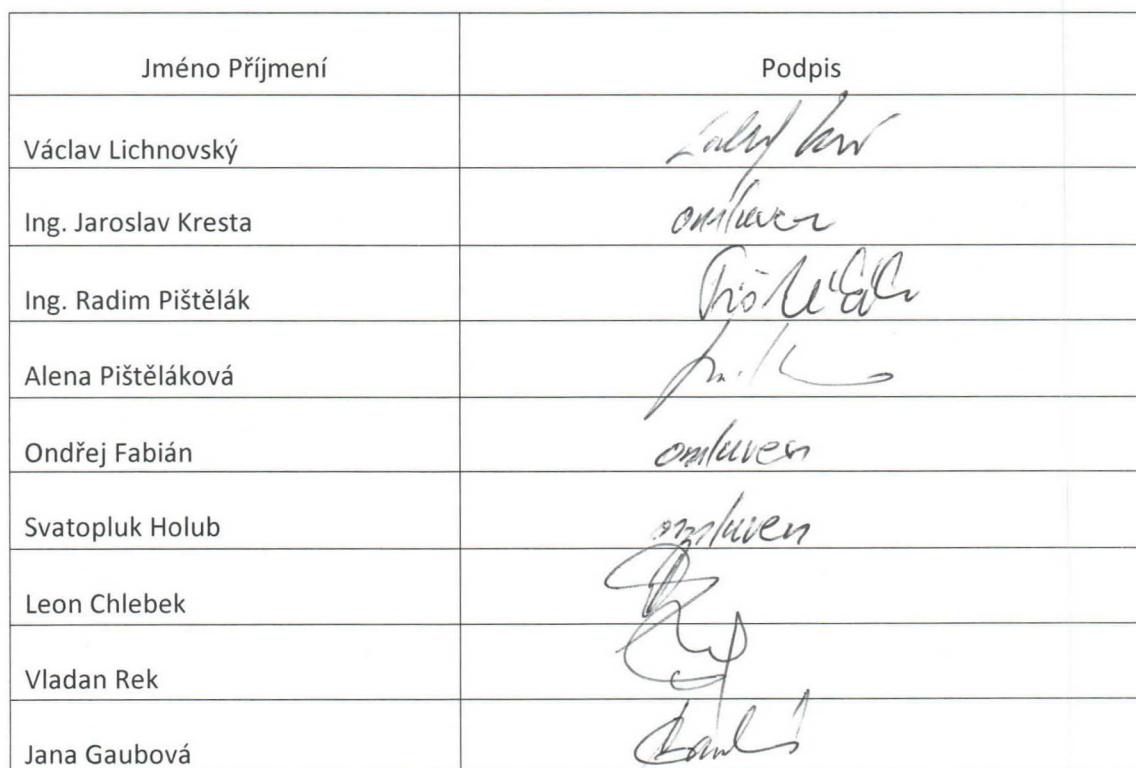 Jméno Příjmení Podpis
Václav Lichnovský
Ing. Jaroslav Kresta omluven
Ing. Radim Pištělák Pištělák
Alena Pištěláková
Ondřej Fabián omluven
Svatopluk Holub omluven
Leon Chlebek
Vladan Rek
Jana Gaubová